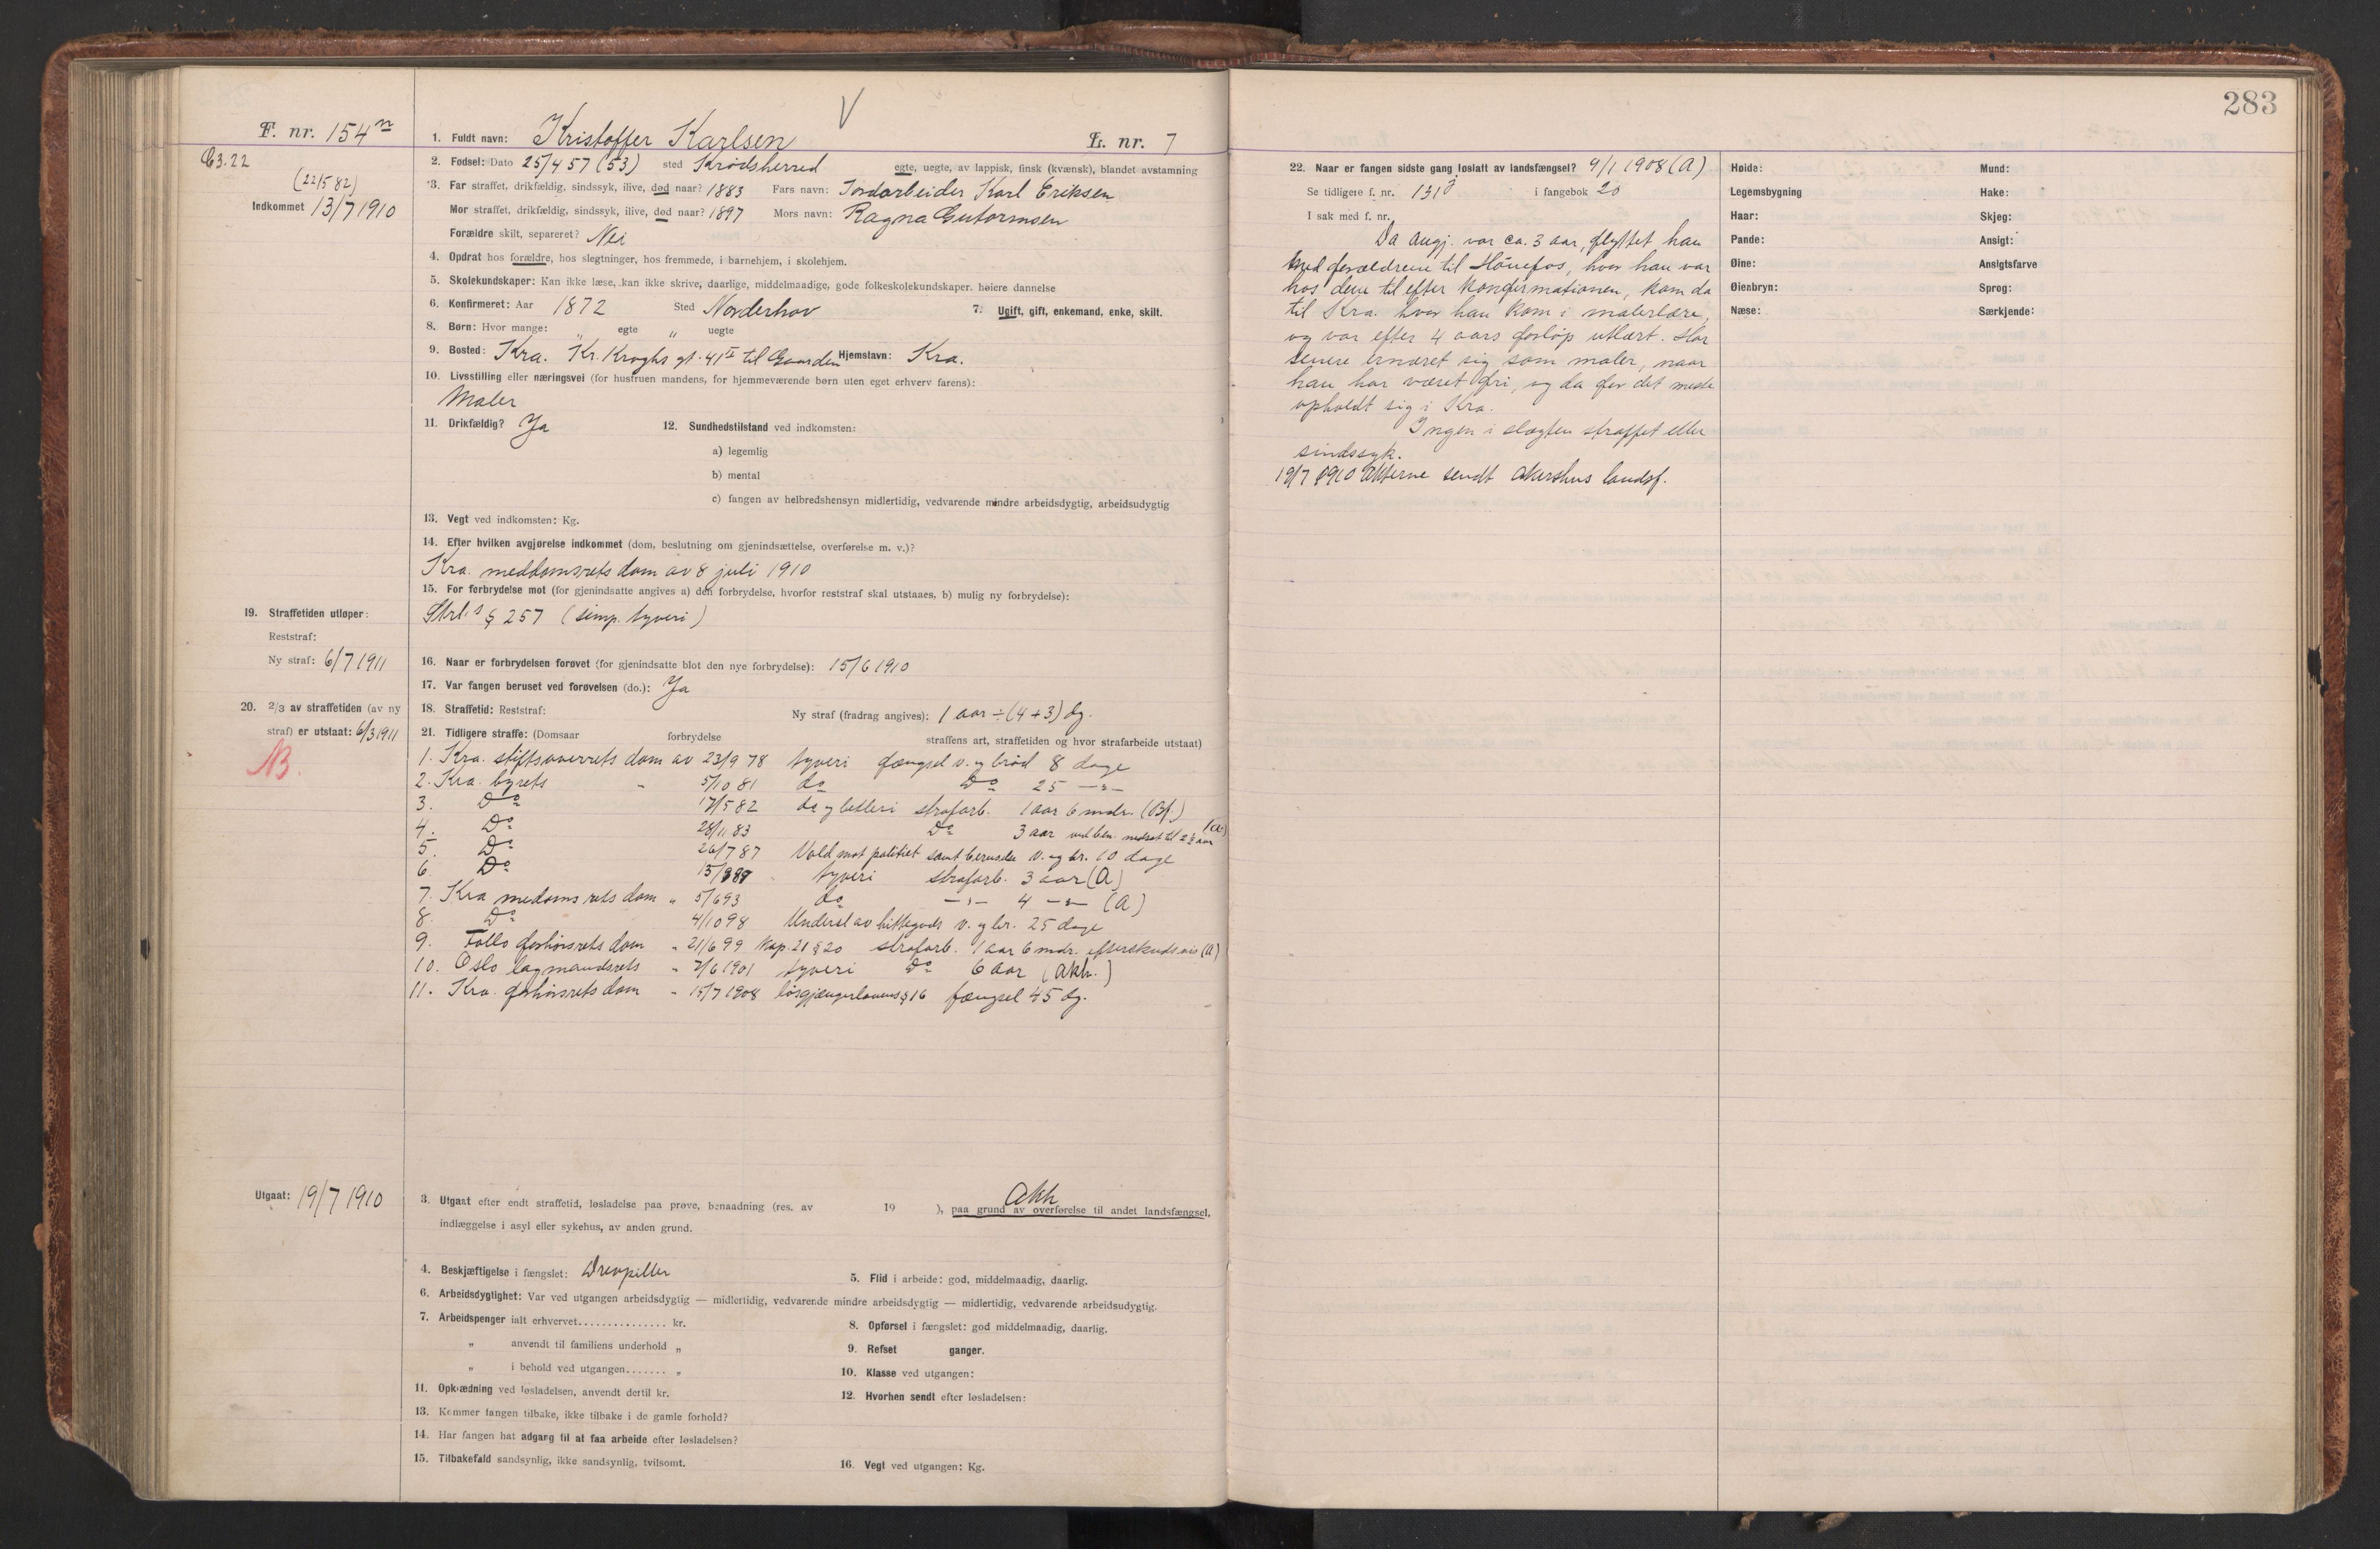 283
F. nr. 154n
C3.22
(22/5 82)
Indkommet 13/7 1910
V
1. Fuldt navn: Kristoffer Karlsen L. nr. 7
2. Fødsel: Dato 25/4 57 (53) sted Krødsherred egte, uegte, av lappisk, finsk (kvænsk), blandet avstamning
3. Far straffet, drikfældig, sindssyk, ilive, død naar? 1883 Fars navn: Jordarbeider Karl Eriksen
Mor straffet, drikfældig, sindssyk, ilive, død naar? 1897 Mors navn: Ragna Gutormsen
Forældre skilt, separeret? Nei
4. Opdrat hos forældre, hos slegtninger, hos fremmede, i barnehjem, i skolehjem.
5. Skolekundskaper: Kan ikke læse, kan ikke skrive, daarlige, middelmaadige, gode folkeskolekundskaper. høiere dannelse
6. Konfirmeret: Aar 1872 Sted Norderhov 7. Ugift, gift, enkemand, enke, skilt.
8. Børn: Hvor mange: " egte " uegte
9. Bosted: Kra. Kr. Kroghs gt. 41 II til Gaarden Hjemstavn: Kra.
10. Livsstilling eller næringsvei (for hustruen mandens, for hjemmeværende børn uten eget erhverv farens):
Maler
11. Drikfældig? Ja 12. Sundhedstilstand ved indkomsten:
a) legemlig
b) mental
c) fangen av helbredshensyn midlertidig, vedvarende mindre arbeidsdygtig, arbeidsudygtig
13. Vegt ved indkomsten: Kg.
14. Efter hvilken avgjørelse indkommet (dom, beslutning om gjenindsættelse, overførelse m. v.)?
Kra. meddomsrets dom av 8 juli 1910
15. For forbrydelse mot (for gjenindsatte angives a) den forbrydelse, hvorfor reststraf skal utstaaes, b) mulig ny forbrydelse):
Strl's § 257 (simp. tyveri)
19. Straffetiden utløper:
Reststraf:
Ny straf: 6/7 1911
16. Naar er forbrydelsen forøvet (for gjenindsatte blot den nye forbrydelse): 15/6 1910
17. Var fangen beruset ved forøvelsen (do.): Ja
20. 2/3 av straffetiden (av ny
straf) er utstaat: 6/3 1911
NB.
18. Straffetid: Reststraf: Ny straf (fradrag angives): 1 aar ÷ (4+3) dg.
21. Tidligere straffe: (Domsaar forbrydelse straffens art, straffetiden og hvor strafarbeide utstaat)
1. Kra. stiftsoverrets dom av 23/9 78 tyveri fængsel v. og brød 8 dage
2. Kra. byrets " 5/10 81 do Do 25 -"-
3. Do 17/5 82 do og betleri strafarb. 1 aar 6 mdr. (Bf.)
4. Do 28/11 83 Do 3 aar ved ben. nedsat til 2 1/2 aar (A)
5. Do 26/7 87 Vold mot politiet samt beruselse v. og br. 10 dage
6. Do 15/8 89 tyveri strafarb. 3 aar (A)
7. Kra medomsrets dom " 5/6 93 do -"- 4 -"- (A)
8. Do 4/10 98 Undersl av hittegods v. og br. 25 dage
9. Follo forhørsrets dom " 21/6 99 Kap. 21 § 20 strafarb. 1 aar 6 mdr. efterskudsvis (A)
10. Oslo lagmandsrets " 7/6 1901 tyveri Do 6 aar (Akh.)
11. Kra. forhørsrets dom " 15/7 1908 løsgjængerlovens § 16 fængsel 45 dg.
Utgaat: 19/7 1910
Akh
3. Utgaat efter endt straffetid, løsladelse paa prøve, benaadning (res. av 19 ), paa grund av overførelse til andet landsfængsel,
indlæggelse i asyl eller sykehus, av anden grund.
4. Beskjæftigelse i fængslet: Drevpiller 5. Flid i arbeide: god, middelmaadig, daarlig.
6. Arbeidsdygtighet: Var ved utgangen arbeidsdygtig — midlertidig, vedvarende mindre arbeidsdygtig — midlertidig, vedvarende arbeidsudygtig.
7. Arbeidspenger ialt erhvervet............... kr. 8. Opførsel i fængslet: god middelmaadig, daarlig.
" anvendt til familiens underhold " 9. Refset ganger.
" i behold ved utgangen....... " 10. Klasse ved utgangen:
11. Opklædning ved løsladelsen, anvendt dertil kr. 12. Hvorhen sendt efter løsladelsen:
13. Kommer fangen tilbake, ikke tilbake i de gamle forhold?
14. Har fangen hat adgang til at faa arbeide efter løsladelsen?
15. Tilbakefald sandsynlig, ikke sandsynlig, tvilsomt. 16. Vegt ved utgangen: Kg.
22. Naar er fangen sidste gang løslatt av landsfængsel? 9/1 1908 (A)
Se tidligere f. nr. 131 i fangebok 20
I sak med f. nr.
Da angj. var ca. 3 aar, flyttet han
med forældrene til Hönefos, hvor han var
hos dem til efter konfirmationen, kom da
til Kra. hvor han kom i malerlære,
og var efter 4 aars forløp utlært. Har
senere ernæret sig som maler, naar
han har været fri, og da for det meste
opholdt sig i Kra.
Ingen i slægten straffet eller
sindssyk.
19/7 1910 Akterne sendt Akershus landsf.
Høide: Mund:
Legemsbygning Hake:
Haar: Skjeg:
Pande: Ansigt:
Øine: Ansigtsfarve
Øienbryn: Sprog:
Næse: Særkjende: